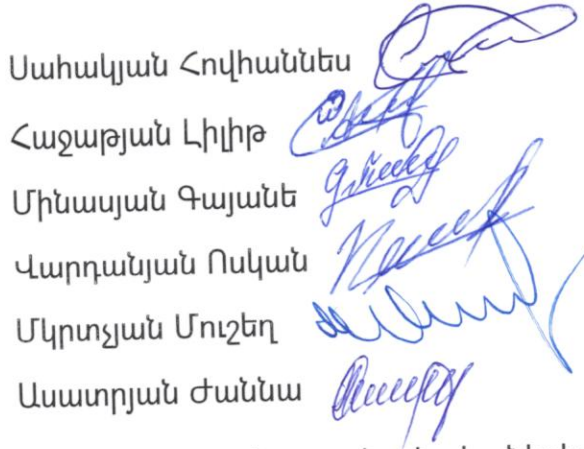 Սահակյան Հովհաննես
Հաջաթյան Լիլիթ
Մինասյան Գայանե
Վարդանյան Ոսկան
Մկրտչյան Մուշեղ
Ասատրյան Ժաննա